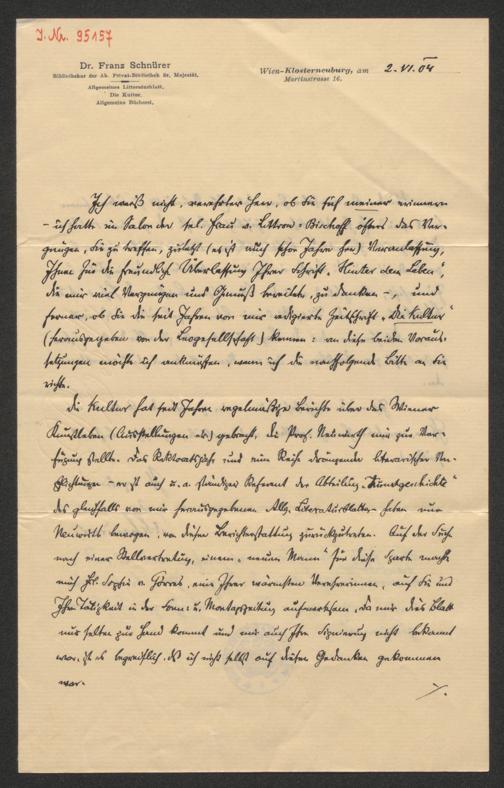 J. Nr. 95157
Dr. Franz Schnürer
Bibliothekar der Ah. Privat-Bibliothek Sr. Majestät.
Allgemeines Litteraturblatt.
Die Kultur.
Allgemeine Bücherei.
Wien-Klosterneuburg, am 2. VI. 04
Martinstrasse 16.
Ich weiß nicht, verehrter Herr, ob Sie sich meiner erinnern
– ich hatte im Salon der sel. Frau v. Littrow-Bischoff öfters das Ver-
gnügen, Sie zu treffen, zuletzt (es ist auch schon Jahre her) Veranlassung,
Ihnen für die freundliche Überlassung Ihrer Schrift „Hinter dem Leben“,
die mir viel Vergnügen und Genuß bereitete, zu danken –, und
ferner, ob Sie die seit Jahren von mir redigierte Zeitschrift „Die Kultur“
(herausgegeben von der Leogesellschaft) kennen: an diese beiden Voraus-
setzungen möchte ich anknüpfen, wenn ich die nachfolgende Bitte an Sie
richte.
Die Kultur hat seit Jahren regelmäßige Berichte über das Wiener
Kunstleben (Ausstellungen etc) gebracht, die Prof. Neuwirth mir zur Ver-
fügung stellte. Das Rektoratsjahr und eine Reihe drängender literarischer Ver-
pflichtungen – er ist auch u. a. ständiger Referent der Abteilung „Kunstgeschichte“
des gleichfalls von mir herausgegebenen Allg. Literaturblattes – haben nun
Neuwirth bewogen, von dieser Berichterstattung zurückzutreten. Auf der Suche
nach einer Stellvertretung, einem „neuen Mann“ für diese Sparte machte
mich Frl. Sophie v. Görres, eine Ihrer wärmsten Verehrerinnen, auf Sie und
Ihre Tätigkeit in der Sonn- u. Montagszeitung aufmerksam. Da mir dies Blatt
nur selten zur Hand kommt und mir auch Ihre Signierung nicht bekannt
war, ist es begreiflich, daß ich nicht selbst auf diesen Gedanken gekommen
war.